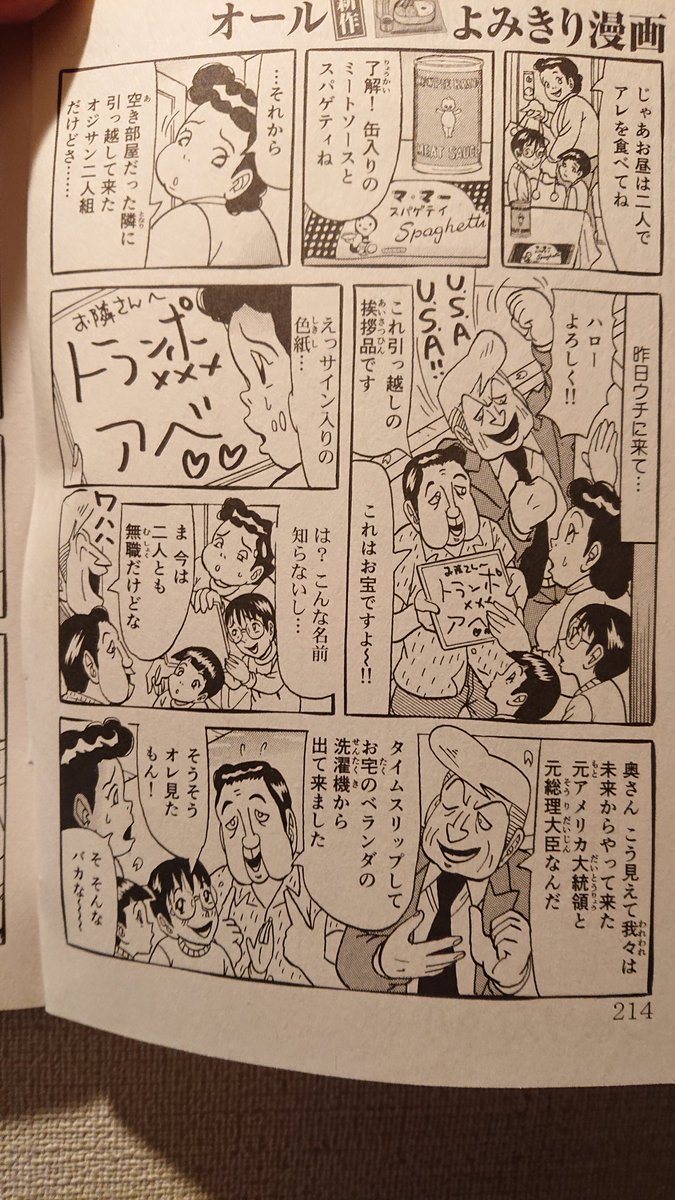 オール
新作
よみきり漫画
じゃあお昼は二人で
アレを食べてね
了解！缶入りの
りょうかい
ミートソースと
スパゲティね
MEAT SAUCE
マ・マー
スパゲテイ
Spaghetti
…それから
空き部屋だった隣に
あ
となり
引っ越して来た
オジサン二人組
だけどさ……
昨日ウチに来て…
ハロー
よろしく!!
U.S.A
U.S.A!!
これ引っ越しの
挨拶品です
あいさつひん
これはお宝ですよ〜!!
お隣さんへ
トランポ
×××
アベ♡
えっサイン入りの
色紙…
しきし
お隣さんへ
トランポ
×××
アベ♡♡
は？こんな名前
知らないし…
ま 今は
二人とも
無職だけどな
むしょく
ワハハ
奥さん こう見えて我々は
われわれ
未来からやって来た
元アメリカ大統領と
もと
だいとうりょう
元総理大臣なんだ
そうりだいじん
タイムスリップして
お宅のベランダの
たく
洗濯機から
せんたくき
出て来ました
そうそう
オレ見た
もん！
そ そんな
バカな〜
214